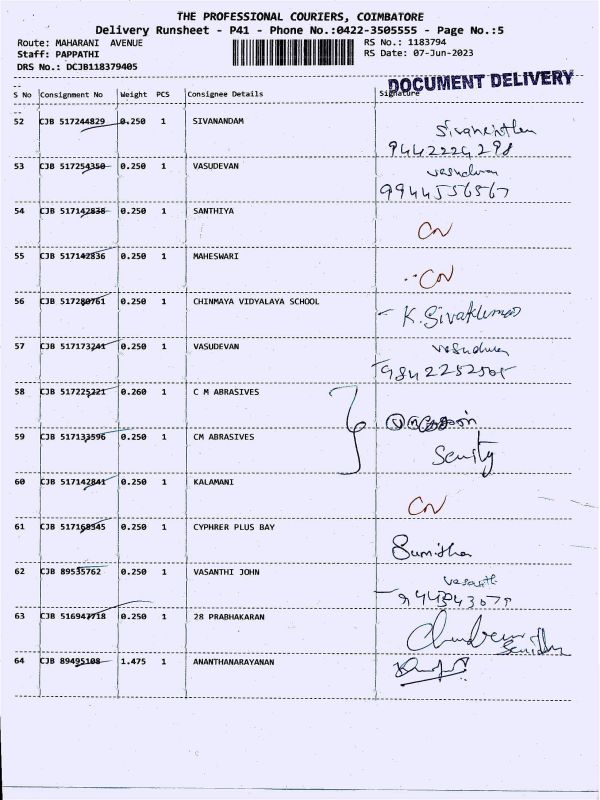 THE PROFESSIONAL COURIERS, COIMBATORE
Delivery Runsheet - P41 - Phone No.:0422-3505555 - Page No.:5
Route: MAHARANI AVENUE RS No.: 1183794
Staff: PAPPATHI RS Date: 07-Jun-2023
DRS No.: DCJB118379405
DOCUMENT DELIVERY
S No Consignment No Weight PCS Consignee Details Signature
52 CJB 517244829 0.250 1 SIVANANDAM
9442224298
53 CJB 517254350 0.250 1 VASUDEVAN vasudevan
9944556567
54 CJB 517142838 0.250 1 SANTHIYA CN
55 CJB 517142836 0.250 1 MAHESWARI CN
56 CJB 517280761 0.250 1 CHINMAYA VIDYALAYA SCHOOL K. Sivakumar
57 CJB 517173241 0.250 1 VASUDEVAN vasudevan
58 CJB 517225221 0.260 1 C M ABRASIVES
59 CJB 517133596 0.250 1 CM ABRASIVES
60 CJB 517142841 0.250 1 KALAMANI CN
61 CJB 517168345 0.250 1 CYPHRER PLUS BAY Sumitha
62 CJB 89535762 0.250 1 VASANTHI JOHN
63 CJB 516947718 0.250 1 28 PRABHAKARAN
64 CJB 89495108 1.475 1 ANANTHANARAYANAN